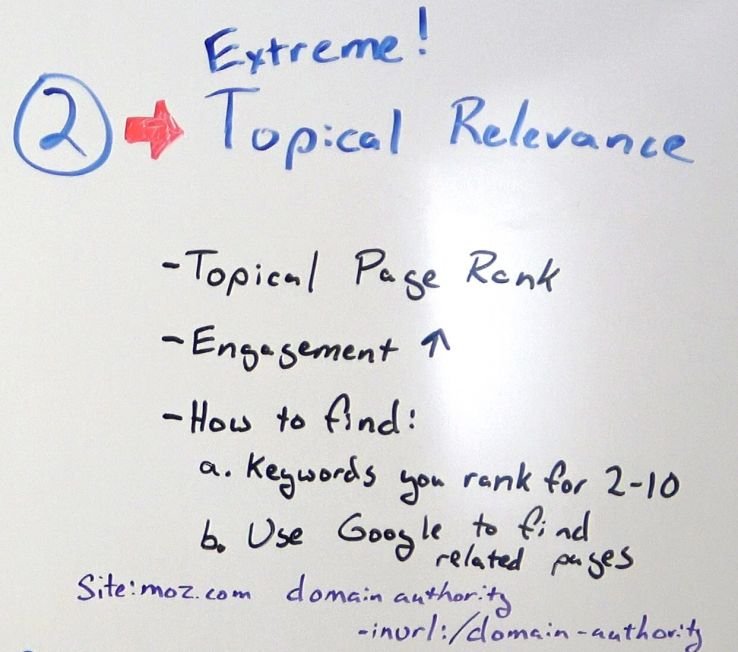 Extreme!
2 → Topical Relevance
-Topical Page Rank
-Engagement ↑
-How to find:
a. Keywords you rank for 2-10
b. Use Google to find
related pages
Site:moz.com domain authority
-inurl:/domain-authority